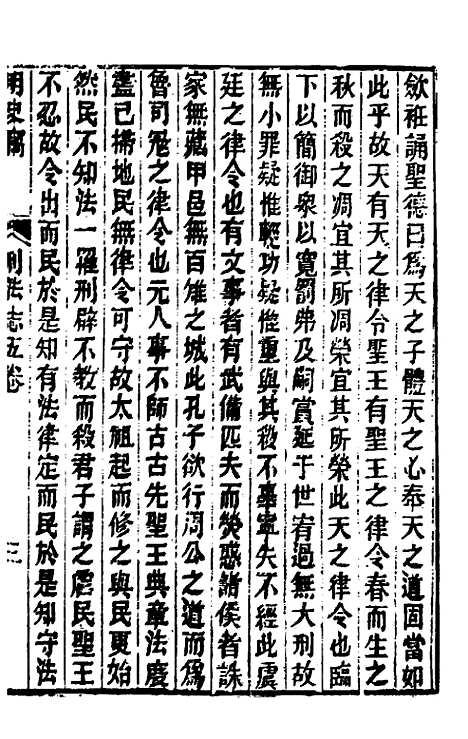 歛衽誦聖德曰為天之子體天之心奉天之道固當如
此乎故天有天之律令聖王有聖王之律令春而生之
秋而殺之凋宜其所凋榮宜其所榮此天之律令也臨
下以簡御衆以寬罰弗及嗣賞延于世宥過無大刑故
無小罪疑惟輕功疑惟重與其殺不辜寧失不經此虞
廷之律令也有文事者有武備匹夫而熒惑諸侯者誅
家無藏甲邑無百雉之城此孔子欲行周公之道而為
魯司寇之律令也元人事不師古古先聖王典章法度
盡已掃地民無律令可守故太祖起而修之與民更始
然民不知法一罹刑辟不教而殺君子謂之虐民聖王
不忍故令出而民於是知有法律定而民於是知守法
明史竊
刑法志五卷
三